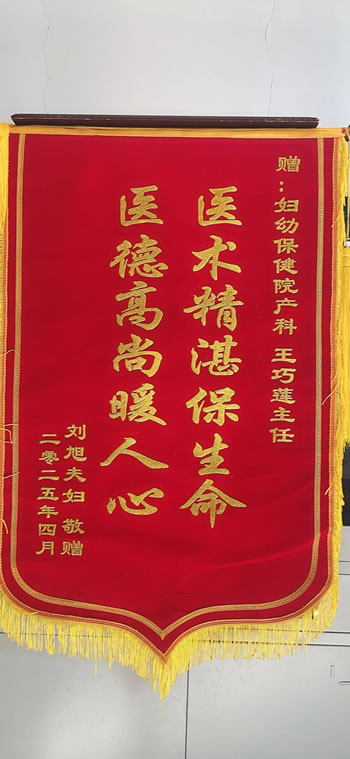 赠：妇幼保健院产科 王巧莲主任
医术精湛保生命
医德高尚暖人心
刘旭夫妇 敬赠
二零二五年四月